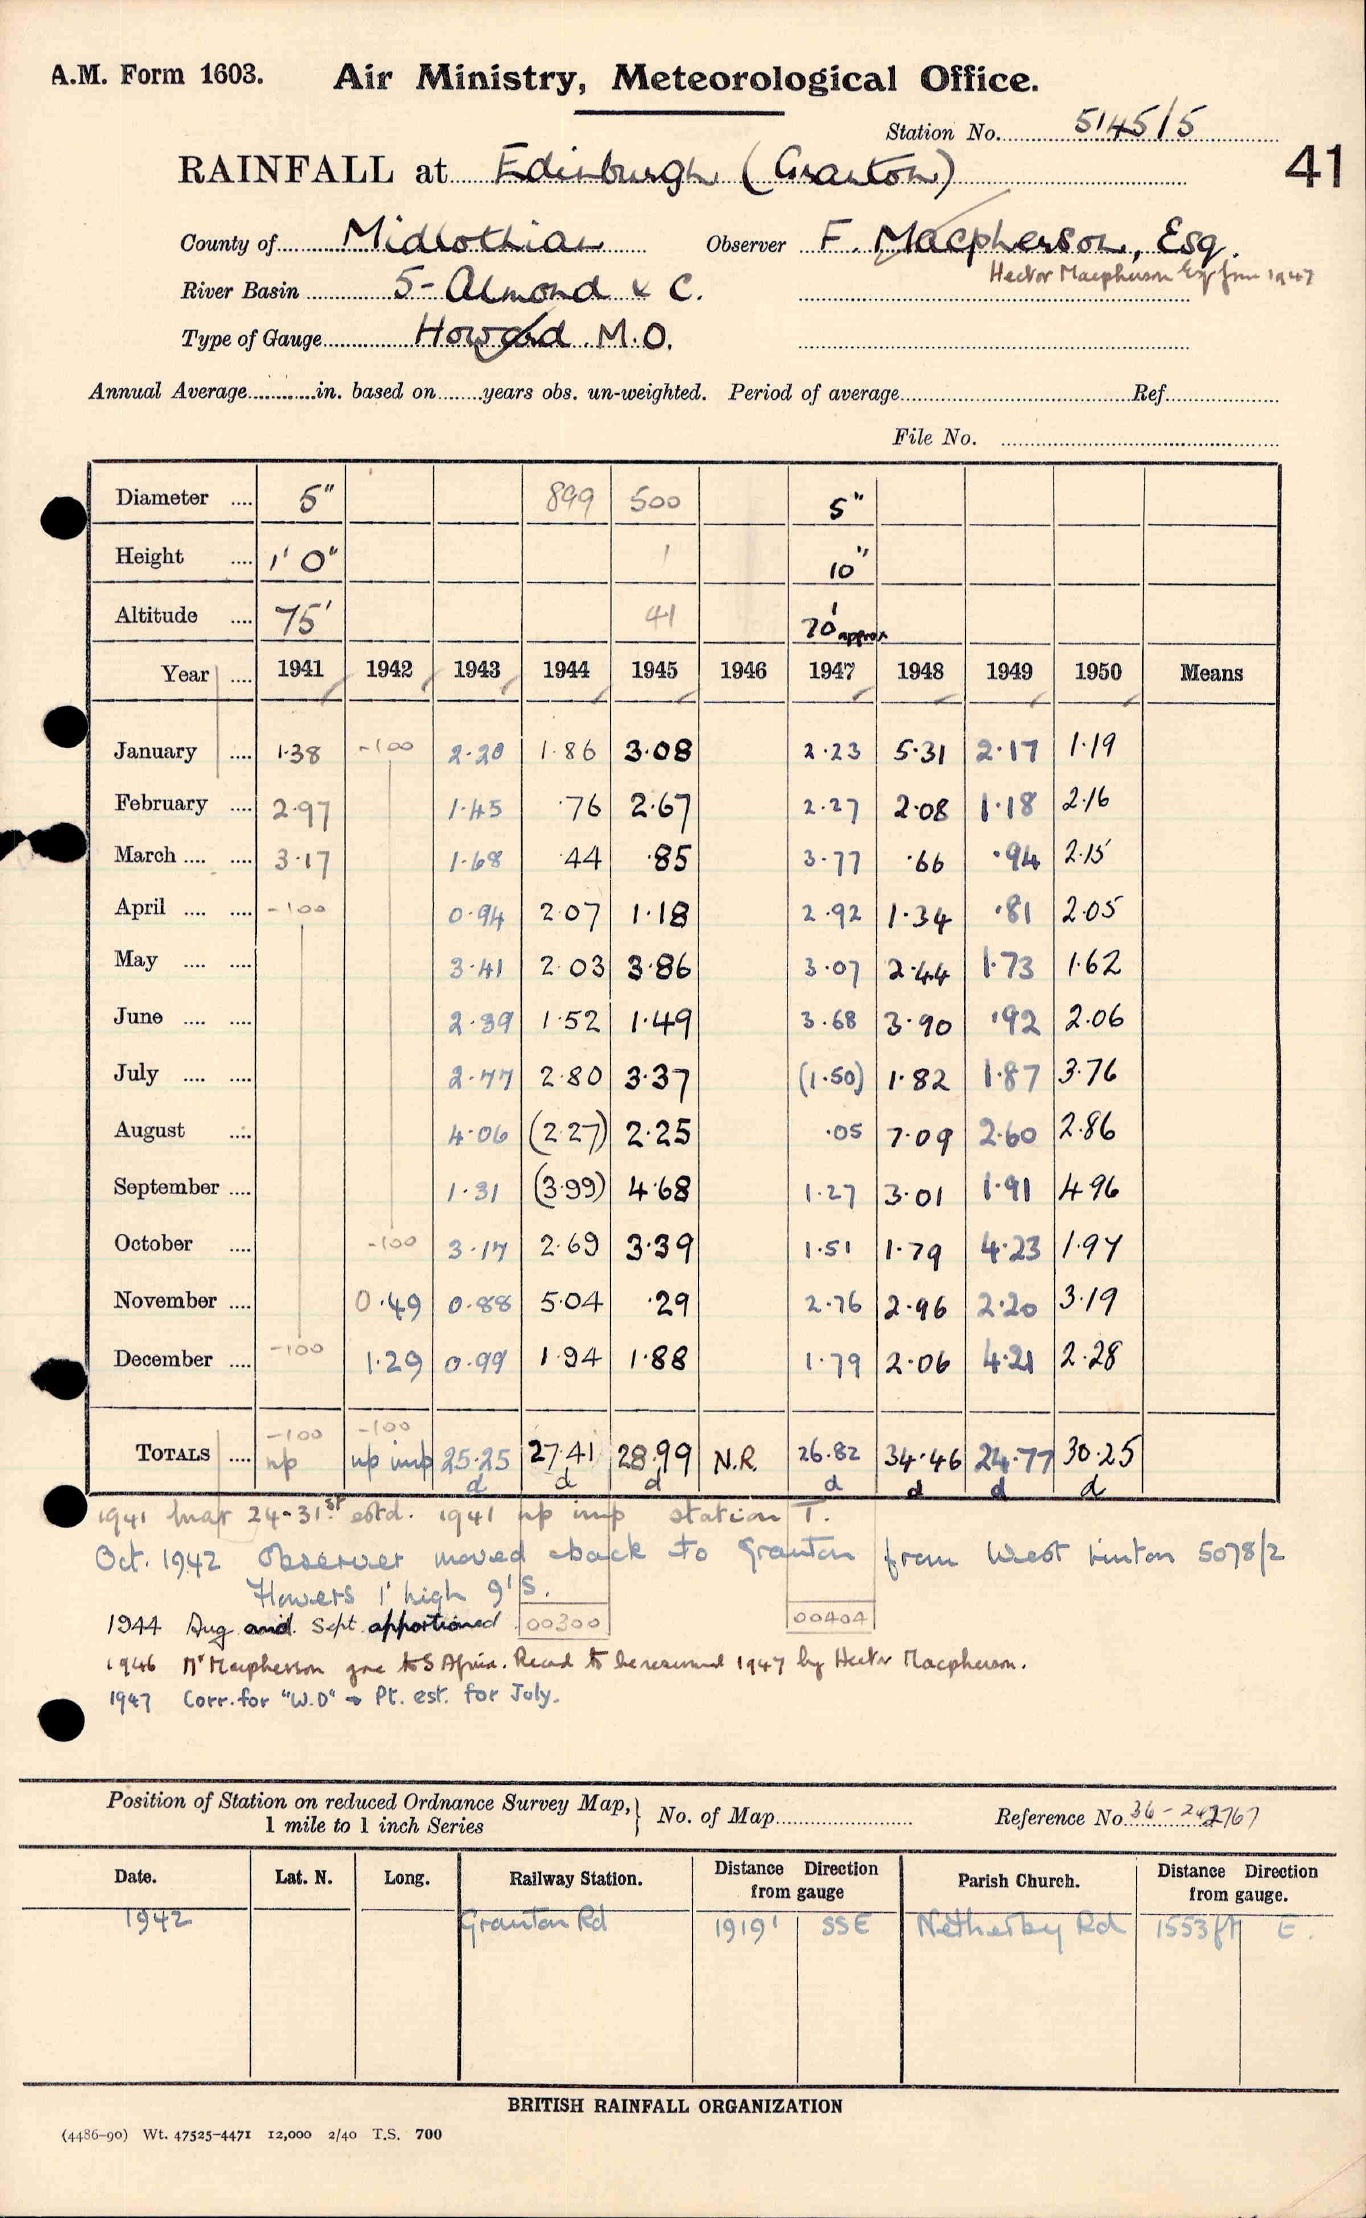 A.M. Form 1603. Air Ministry, Meteorological Office.
Station No. 5145/5
41
RAINFALL at Edinburgh (Granton)
County of Midlothian Observer F. Macpherson, Esq.
Hector Macpherson Esq from 1947
River Basin 5 - Almond & C.
Type of Gauge Howard M.O.
Annual Average in. based on years obs. un-weighted. Period of average Ref.
File No.
Diameter 5" 899 500 5"
Height 1' 0" 1 10"
Altitude 75' 41 70' approx
Year 1941 1942 1943 1944 1945 1946 1947 1948 1949 1950 Means
January 1.38 -100 2.20 1.86 3.08 2.23 5.31 2.17 1.19
February 2.97 1.45 .76 2.67 2.27 2.08 1.18 2.16
March 3.17 1.68 .44 .85 3.77 .66 .94 2.15
April -100 0.94 2.07 1.18 2.92 1.34 .81 2.05
May 3.41 2.03 3.86 3.07 2.44 1.73 1.62
June 2.39 1.52 1.49 3.68 3.90 .92 2.06
July 2.77 2.80 3.37 (1.50) 1.82 1.87 3.76
August 4.06 (2.27) 2.25 .05 7.09 2.60 2.86
September 1.31 (3.99) 4.68 1.27 3.01 1.91 4.96
October -100 3.17 2.69 3.39 1.51 1.79 4.23 1.97
November 0.49 0.88 5.04 .29 2.76 2.96 2.20 3.19
December -100 1.29 0.99 1.94 1.88 1.79 2.06 4.21 2.28
-100 -100
TOTALS np np imp 25.25 27.41 28.99 N.R. 26.82 34.46 24.77 30.25
d d d d d d d
1941 Mar 24-31st estd. 1941 np imp station T.
Oct. 1942 Observer moved back to Granton from West Linton 5078/2
Flowers 1' high 9' S.
1944 Aug and Sept apportioned 00300 00404
1946 Mr Macpherson gone to S Africa. Record to be resumed 1947 by Hector Macpherson.
1947 Corr. for "W.D" → Pt. est. for July.
Position of Station on reduced Ordnance Survey Map, 1 mile to 1 inch Series } No. of Map Reference No. 36 -
Date. Lat. N. Long. Railway Station. Distance Direction from gauge Parish Church. Distance Direction from gauge.
1942 Granton Rd 1919' SSE Netherby Rd 1553 ft E.
BRITISH RAINFALL ORGANIZATION
(4486-90) Wt. 47525-4471 12,000 2/40 T.S. 700